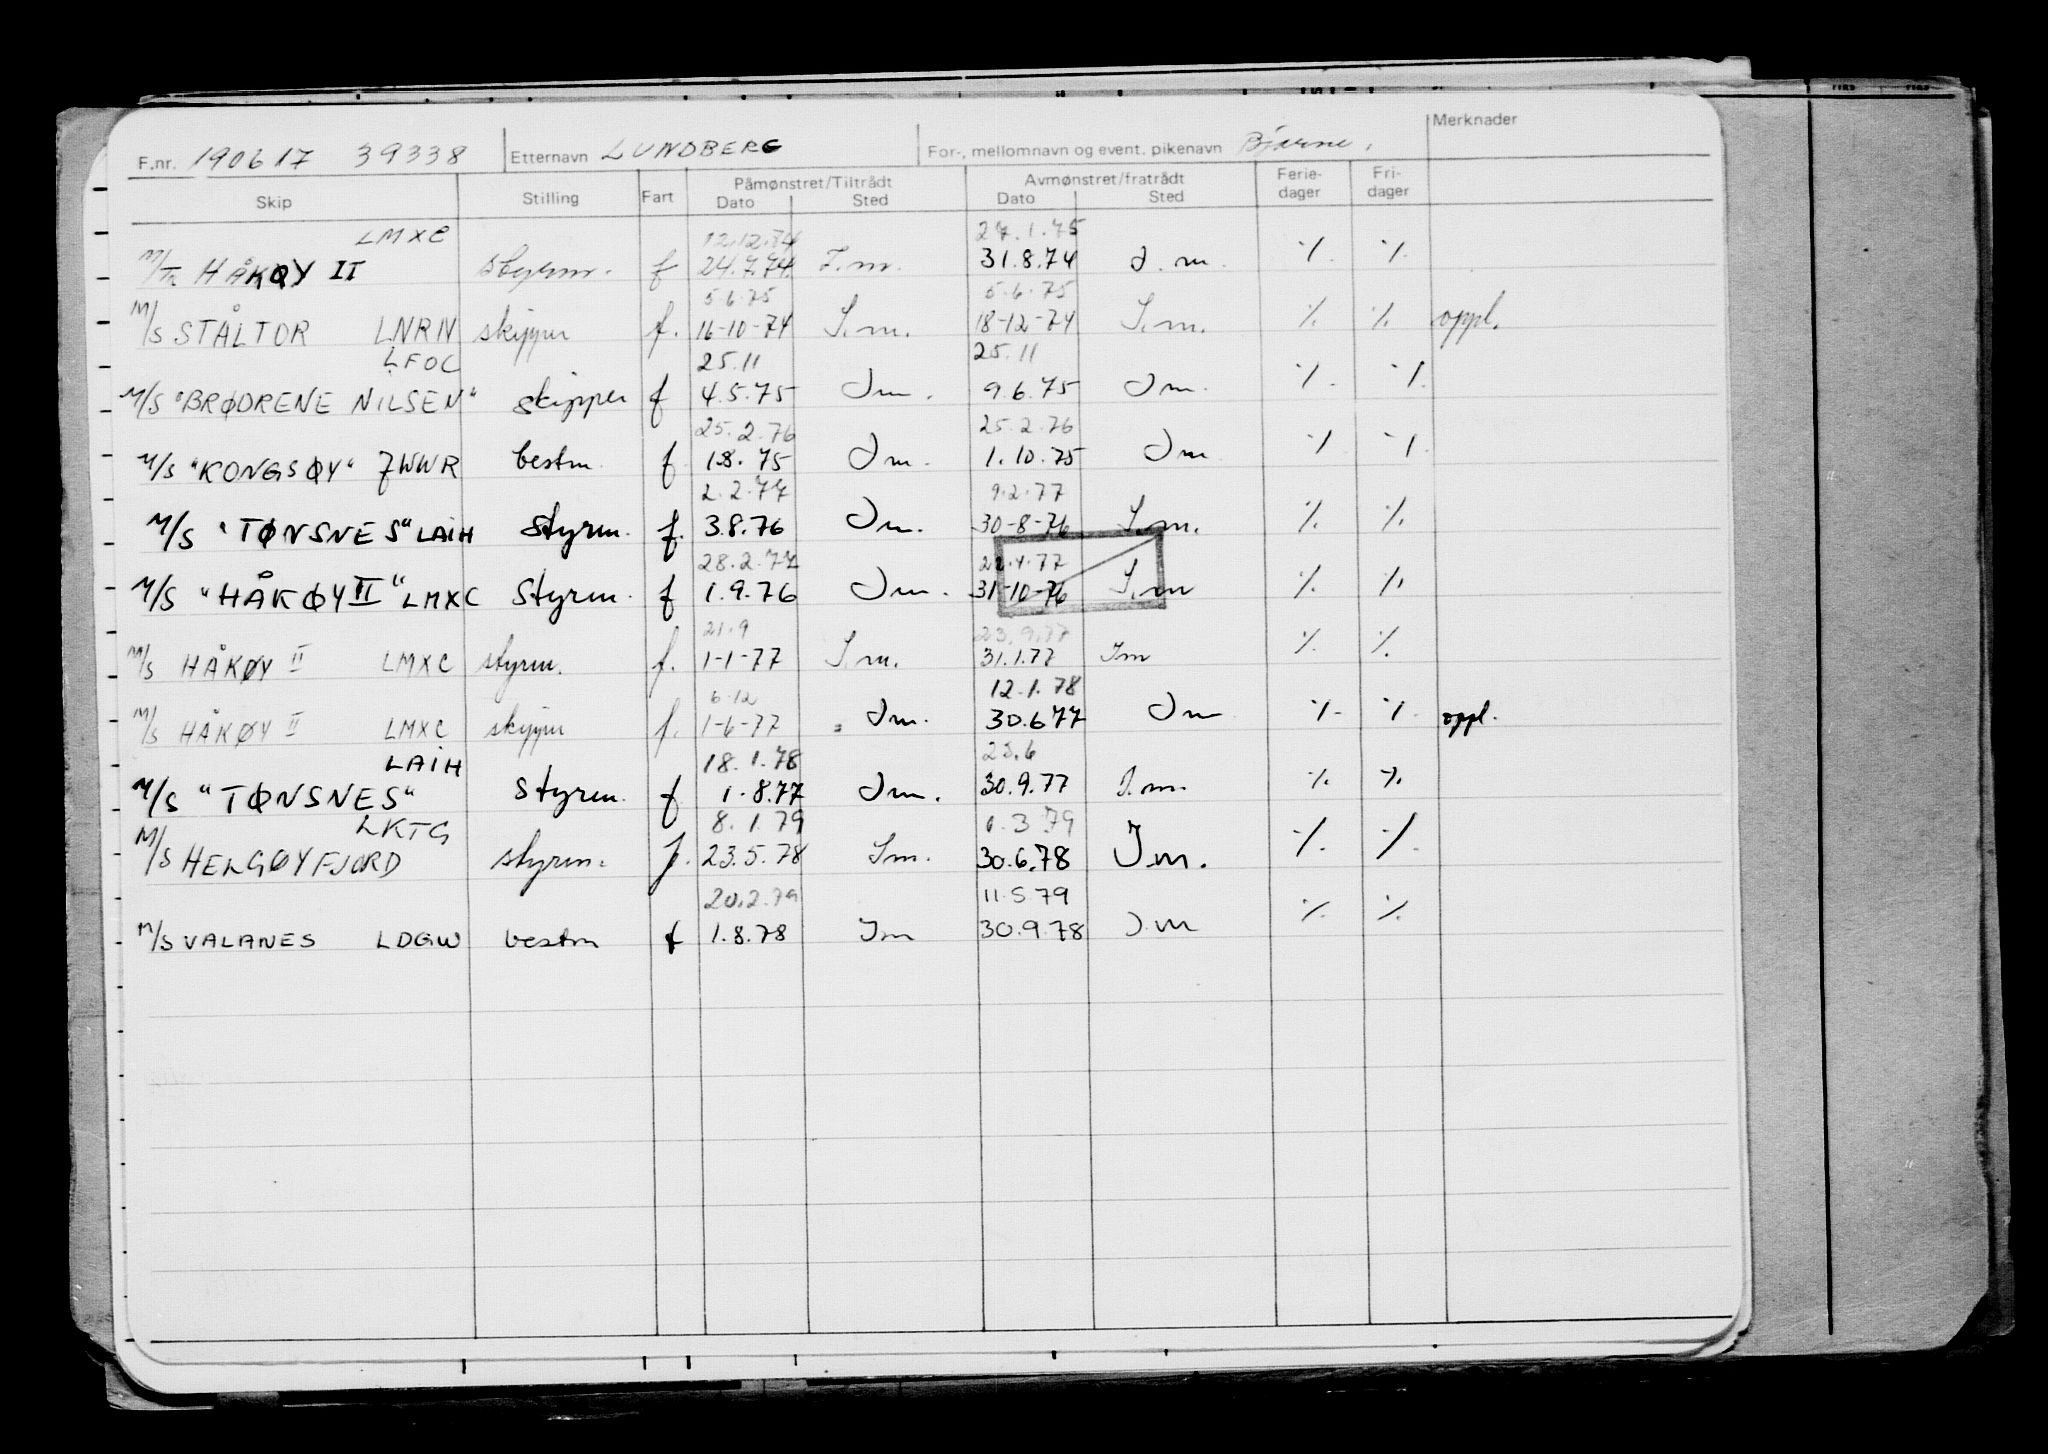 Merknader
F.nr. 190617 39338 Etternavn LUNDBERG For-, mellomnavn og event. pikenavn Bjarne.
Skip Stilling Fart Påmønstret/Tiltrådt Avmønstret/fratrådt Ferie- Fri-
Dato Sted Dato Sted dager dager
LMXC 12.12.74 27.1.75
M/Tr HÅKØY II styrm. f 24.7.74 I.m. 31.8.74 I.m. % %
5.6.75 5.6.75
M/S STÅLTOR LNRN skipper f. 16-10-74 I.m. 18-12-74 I.m. % % oppl.
LFOC 25.11 25.11
M/S "BRØDRENE NILSEN" skipper f 4.5.75 Im. 9.6.75 Im. % %
25.2.76 25.2.76
M/S "KONGSØY" JWWR bestm. f 1.8.75 Im. 1.10.75 Im % %
2.2.77 9.2.77
M/S "TØNSNES" LAIH styrm. f. 3.8.76 Im. 30-8-76 I.m. % %
28.2.77 22.4.77
M/S "HÅKØY II" LMXC Styrm. f 1.9.76 Im. 31-10-76 I.m % %
21.9 23.9.77
M/S HÅKØY II LMXC styrm. f. 1-1-77 I.m. 31.1.77 Im % %
6.12 12.1.78
M/S HÅKØY II LMXC skipper f. 1-6-77 Im. 30.6.77 Im % % oppl.
LAIH 18.1.78 23.6
M/S "TØNSNES" Styrm. f 1.8.77 Im. 30.9.77 I.m. % %
LKTG 8.1.79 1.3.79
M/S HELGØYFJORD styrm. f. 23.5.78 Im. 30.6.78 I.m. % %
20.2.79 11.5.79
M/S VALANES LDGW bestm f 1.8.78 Im 30.9.78 I.m % %